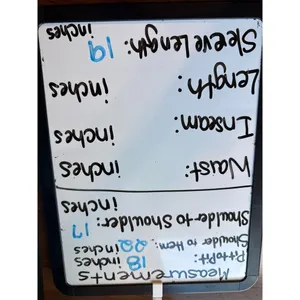 Measurements
Pit to Pit: 18 inches
Shoulder to Hem: 22 inches
Shoulder to Shoulder: 17
inches
Waist: inches
Inseam: inches
Length: inches
Sleeve Length: 19
inches